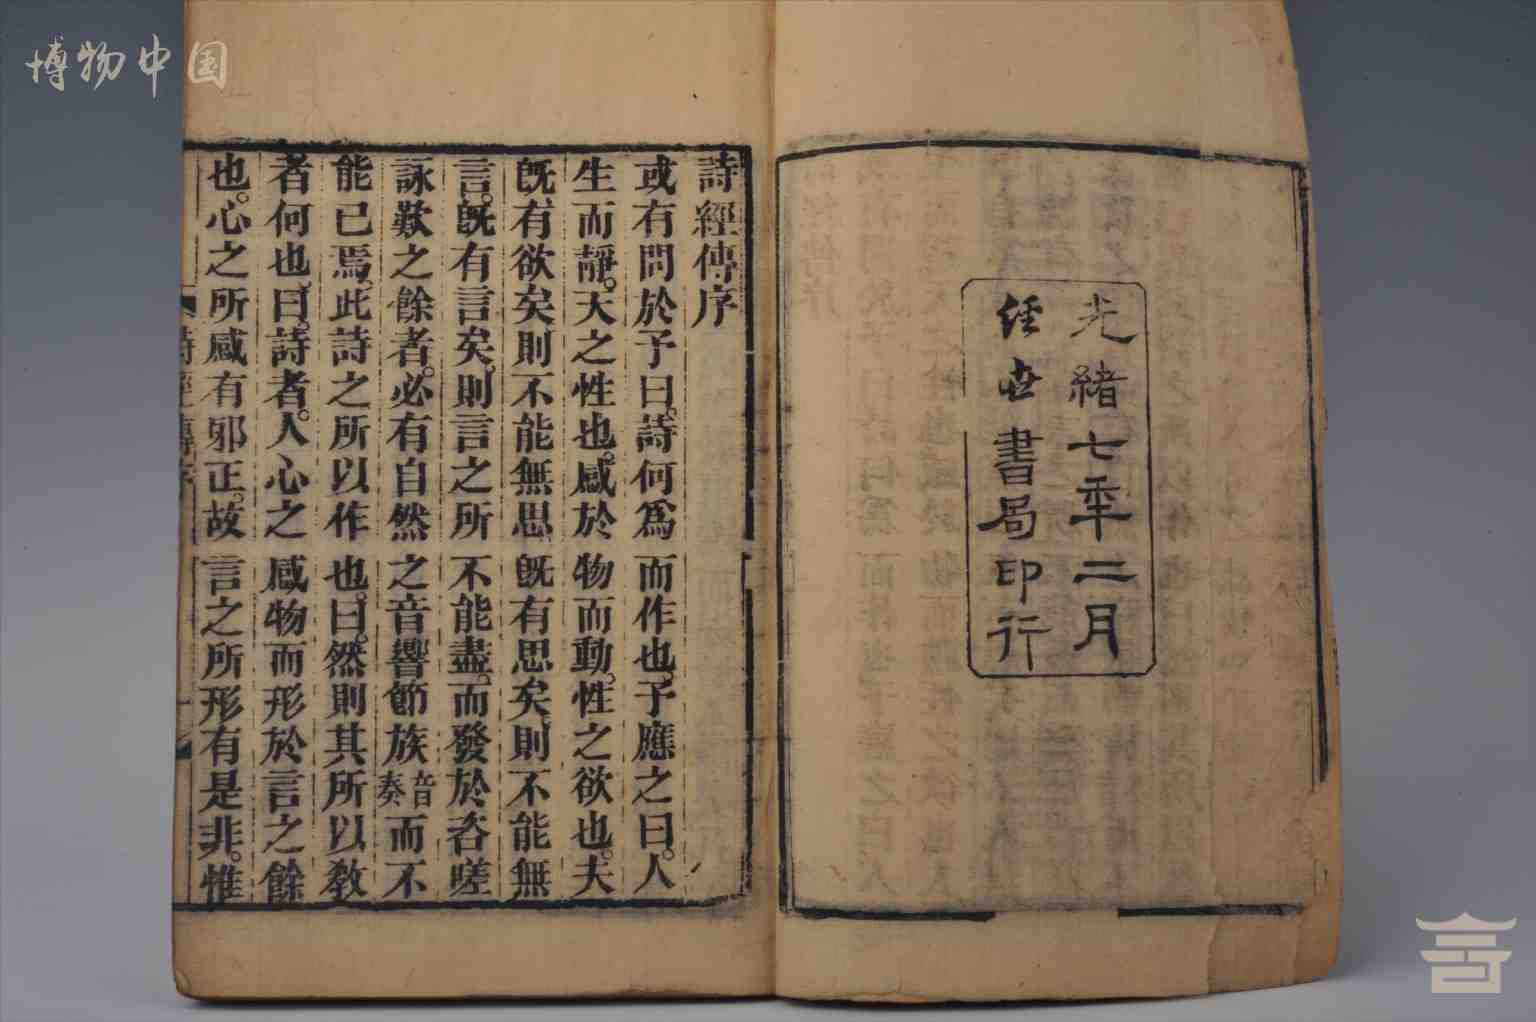 博物中国
光緒七年二月
经世書局印行
詩經傳序
或有問於予曰。詩何爲而作也。予應之曰。人
生而靜。天之性也。感於物而動。性之欲也。夫
旣有欲矣。則不能無思。旣有思矣。則不能無
言。旣有言矣。則言之所不能盡。而發於咨嗟
詠歎之餘者。必有自然之音響節族音奏而不
能已焉。此詩之所以作也。曰。然則其所以教
者何也。曰。詩者。人心之感物而形於言之餘
也。心之所感有邪正。故言之所形有是非。惟
詩經傳序